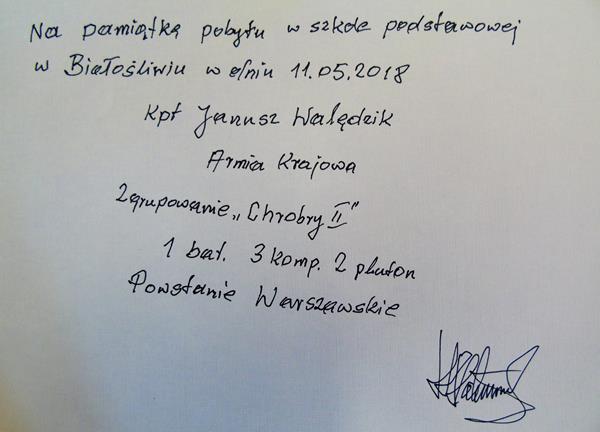 Na pamiątkę pobytu w szkole podstawowej
w Białośliwiu w dniu 11.05.2018
Kpt Janusz Walędzik
Armia Krajowa
Zgrupowanie „Chrobry II"
1 bat. 3 komp. 2 pluton
Powstanie Warszawskie